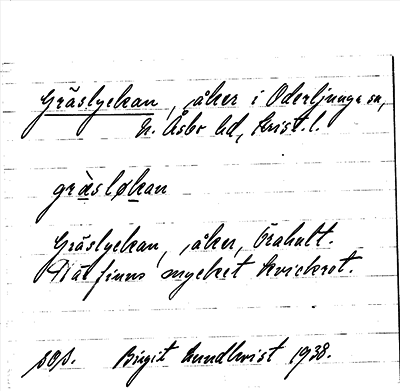 Gräslyckan, åker i Oderljunga sn,
N. Åsbo hd, Krist. l.
gräsløkan
Gräslyckan, åker, Örahult.
Där finns mycket kvickrot.
Birgit Lundkvist 1938.